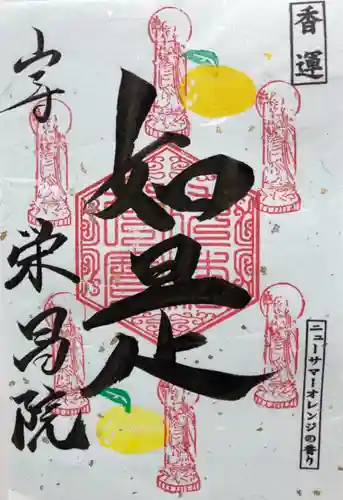 香運
ニューサマーオレンジの香り
如是
栄昌院